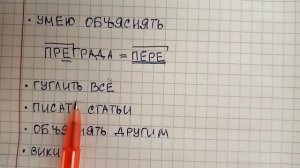 • УМЕЮ ОБЪЯСНЯТЬ
ПРЕГРАДА = ПЕРЕ
• ГУГЛИТЬ ВСЁ
• ПИСАТЬ СТАТЬИ
• ОБЪЯСНЯТЬ ДРУГИМ
• ВИКИ